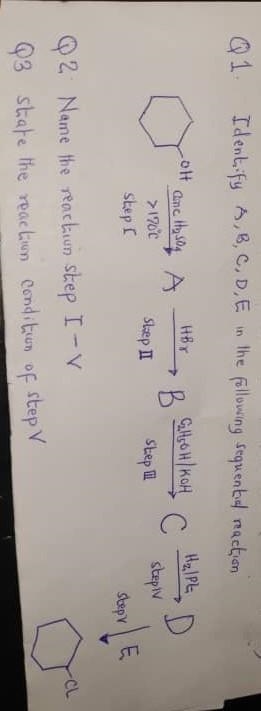 Q1. Identify A, B, C, D, E in the following sequential reaction
OH
Conc H2SO4
>170°C
Step I
A
HBr
Step II
B
C2H5OH/KOH
Step III
C
H2/Pt
Step IV
D
Step V
E
CL
Q2. Name the reaction step I - V
Q3 State the reaction condition of step V